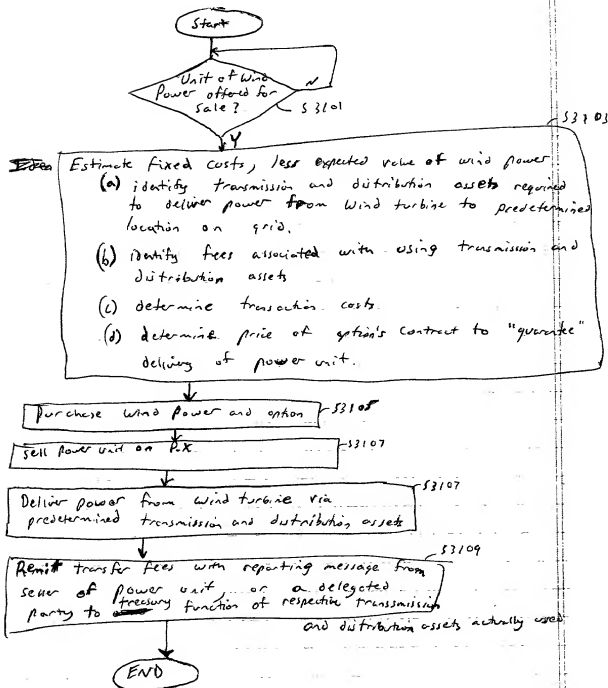 Start
Unit of Wind
Power offered for
sale?
N
S3101
Y
S3103
Estimate fixed costs, less expected value of wind power
(a) identify transmission and distribution assets required
to deliver power from wind turbine to predetermined
location on grid.
(b) identify fees associated with using transmission and
distribution assets
(c) determine transaction costs
(d) determine price of option's contract to "guarantee"
delivery of power unit.
Purchase wind power and option
S3105
Sell power unit on P.X
S3107
Deliver power from wind turbine via
predetermined transmission and distribution assets
S3107
Remit transfer fees with reporting message from
seller of power unit, or a delegated
party to treasury function of respective transmission
and distribution assets actually used
S3109
END